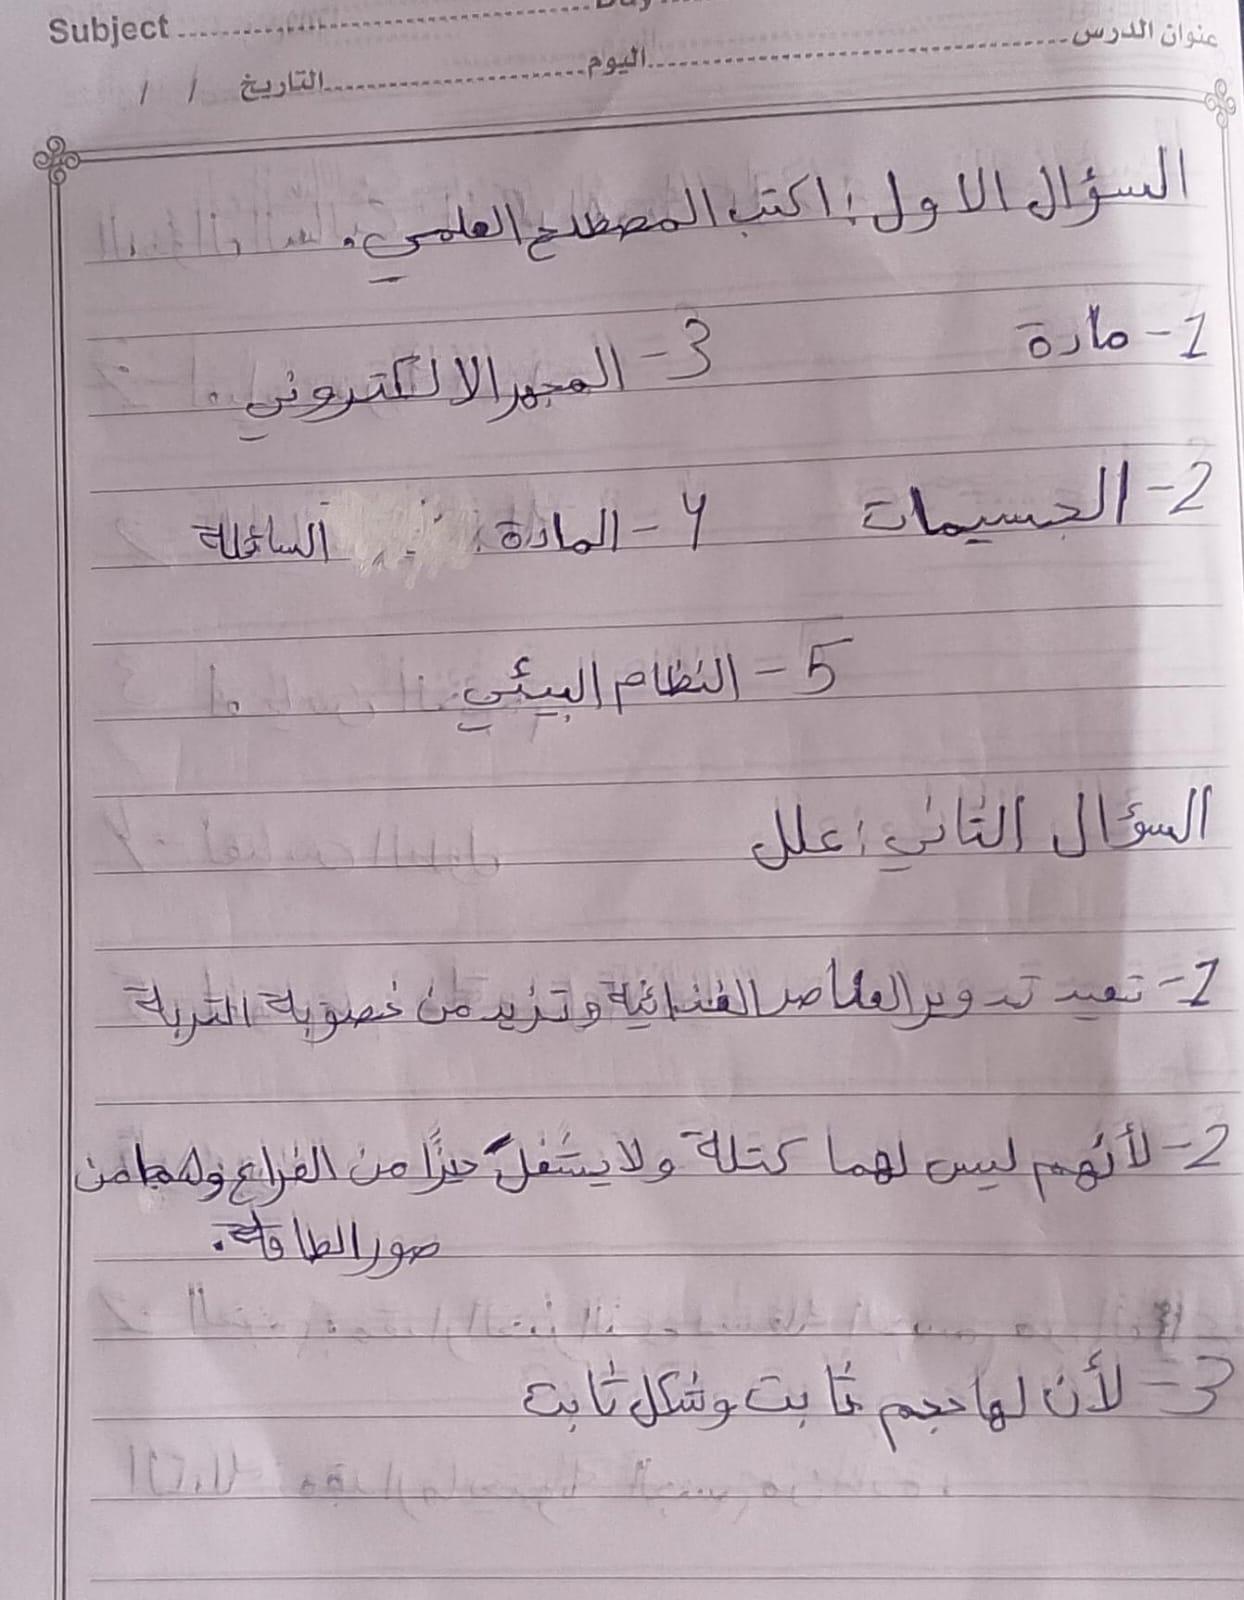 Subject
عنوان الدرس
اليوم
التاريخ / /
السؤال الاول : اكتب المصطلح العلمي .
1- مادة
3- المجهر الالكتروني
2- الجسيمات
4- المادة السائلة
5- النظام البيئي
السؤال الثاني : علل
1- تعيد تدوير العناصر الغذائية وتزيد من خصوبة التربة
2- لأنهم ليس لهما كتلة ولا يشغل حيزًا من الفراغ وهما من
صور الطاقة .
3- لأن لها حجم ثابت وشكل ثابت